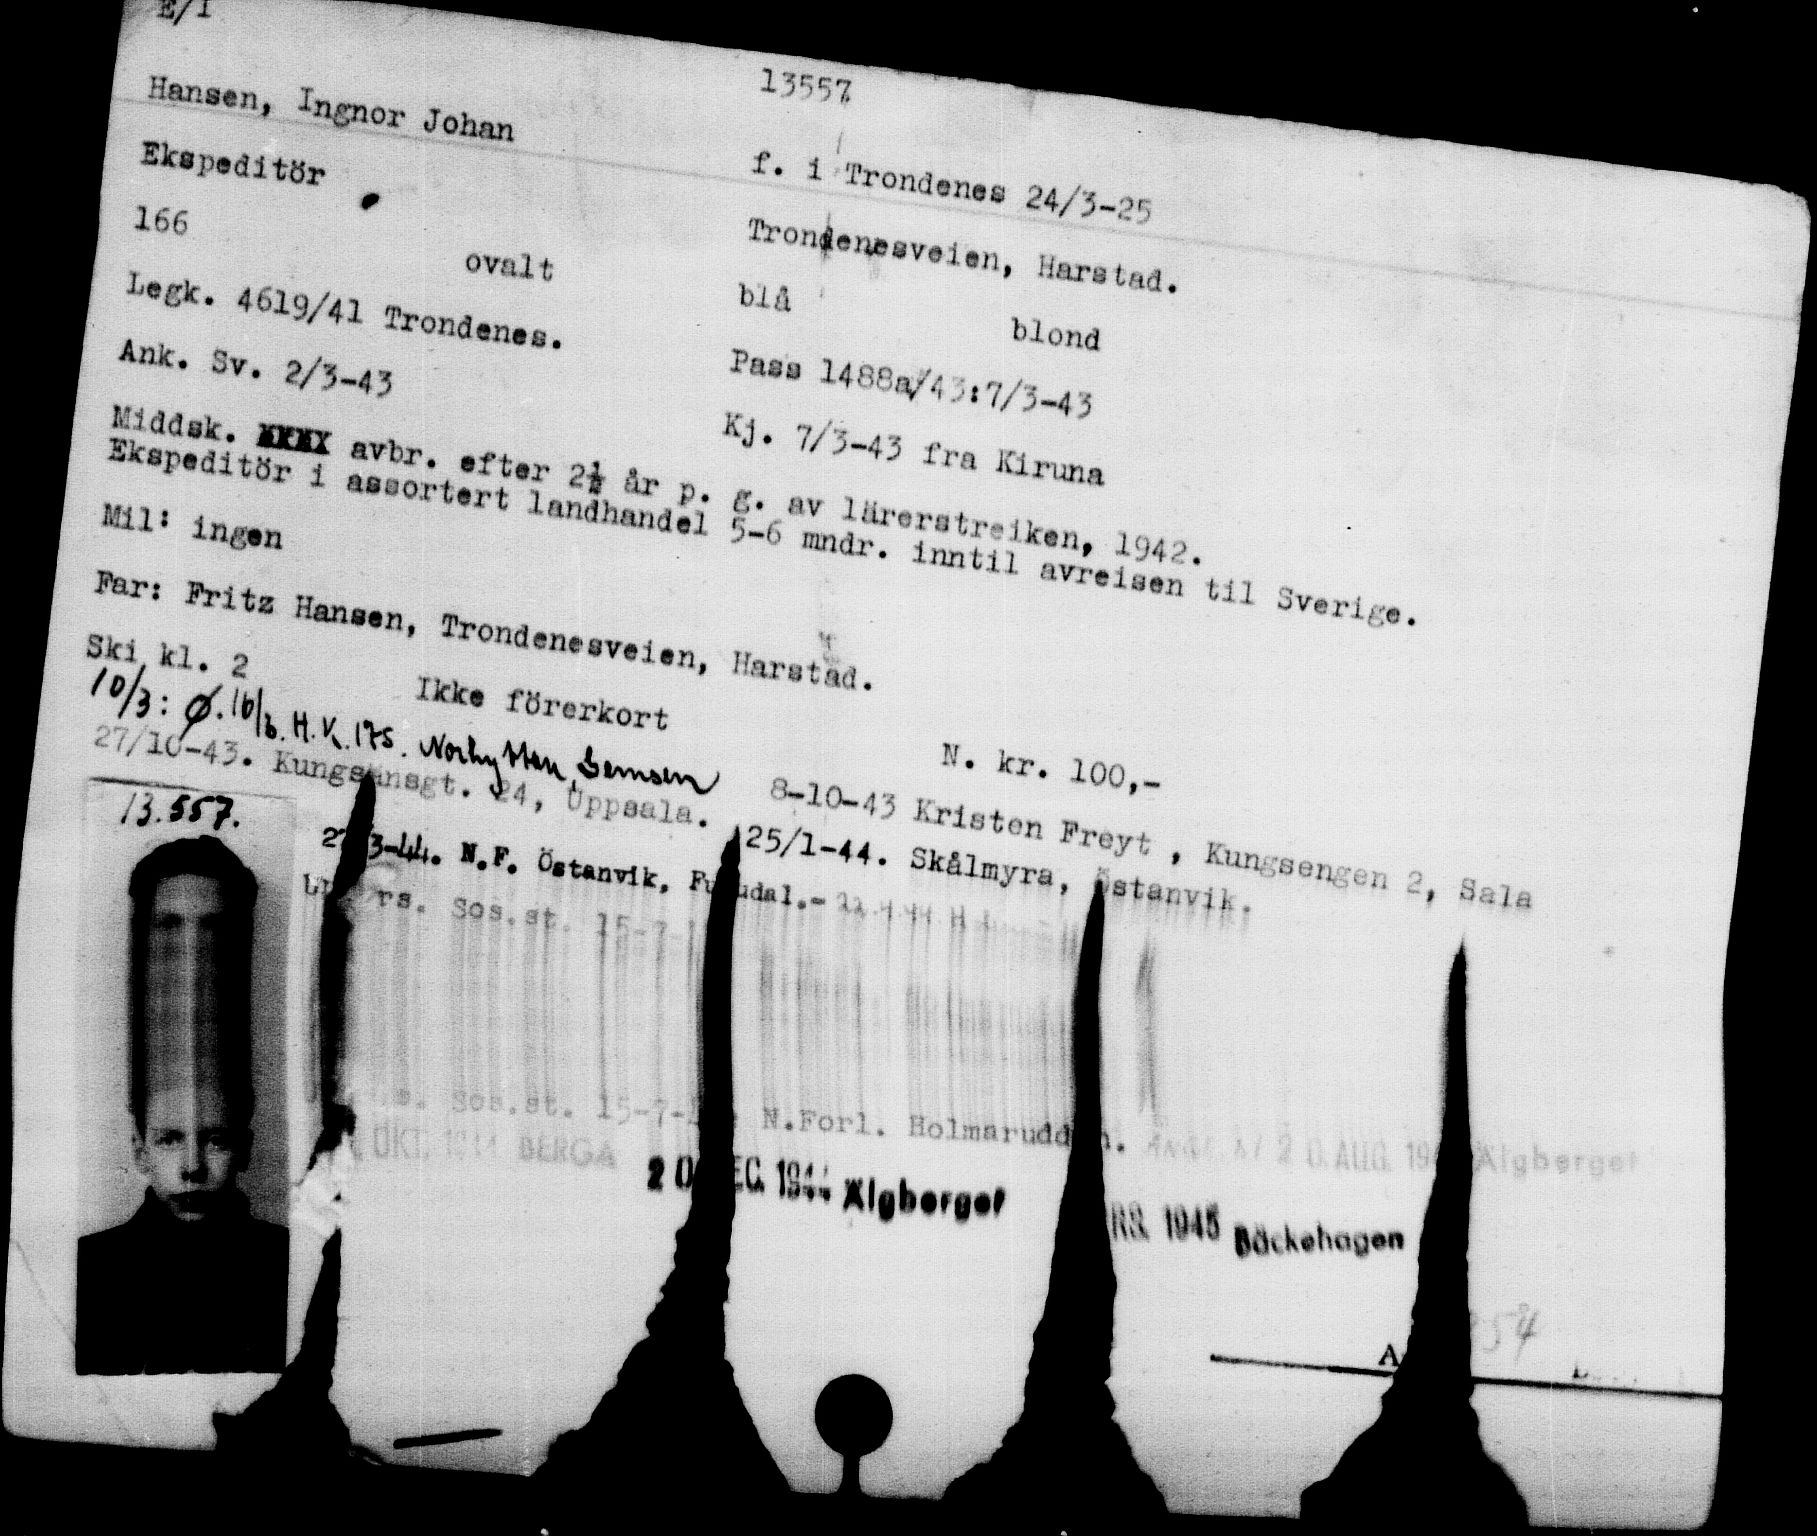 E/1
13557
Hansen, Ingnor Johan
f. i Trondenes 24/3-25
Ekspeditör
Trondenesveien, Harstad.
166 ovalt
blå blond
Legk. 4619/41 Trondenes.
Pass 1488a/43:7/3-43
Ank. Sv. 2/3-43
Kj. 7/3-43 fra Kiruna
Middsk. XXXX avbr. efter 2½ år p. g. av lärerstreiken, 1942.
Ekspeditör i assortert landhandel 5-6 mndr. inntil avreisen til Sverige.
Mil: ingen
Far: Fritz Hansen, Trondenesveien, Harstad.
Ski kl. 2 Ikke förerkort N. kr. 100,-
10/3: Ø. 16/3. H.V. 175.
8-10-43 Kristen Freyt , Kungsengen 2, Sala
27/10-43. Kungsänsgt. 24, Uppsala.
25/1-44. Skålmyra, Östanvik.
13.557.
3-44. N.F. Östanvik, Fu udal.-
rs. Sos.st. 15-7-
Sos.st. 15-7- N.Forl. Holmarudd n. 20. AUG. 194 Älgberget
OKT. 1944 BERGA
20 EC. 1944 Älgberget
RS. 1945 Bäckehagen
54
A